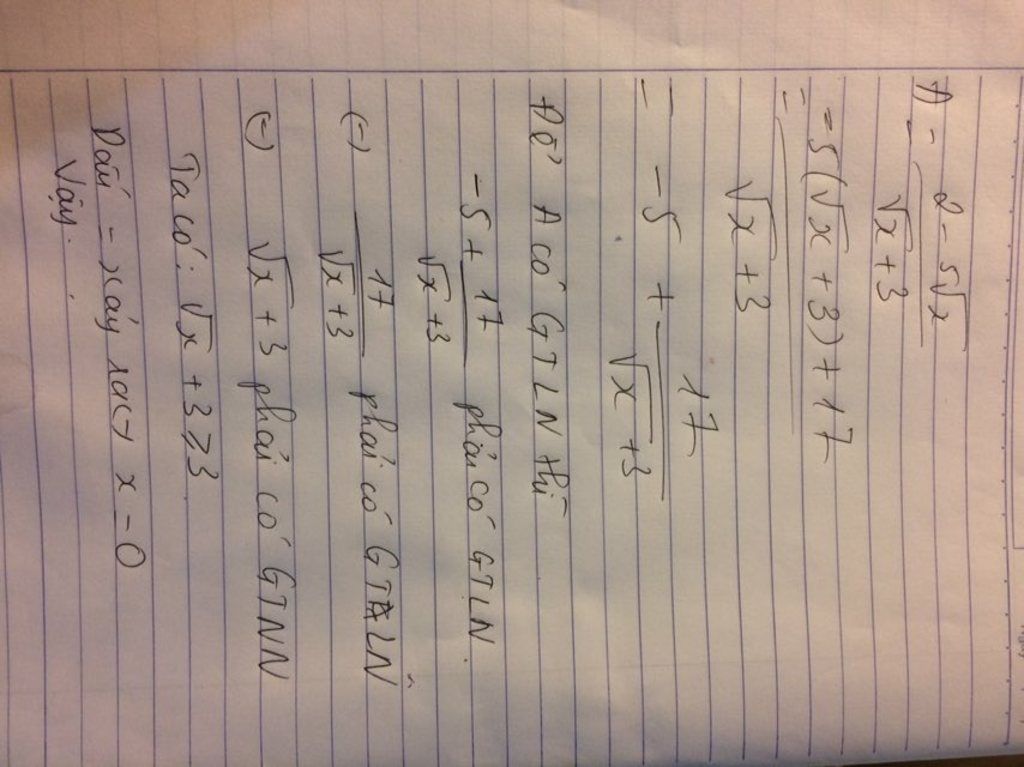 A = (2 - 5√x)/(√x + 3)
= (-5(√x + 3) + 17)/(√x + 3)
= -5 + 17/(√x + 3)
Để A có GTLN thì
-5 + 17/(√x + 3) phải có GTLN.
(-) 17/(√x + 3) phải có GTLN
(-) √x + 3 phải có GTNN
Ta có: √x + 3 ≥ 3
Dấu = xảy ra <-> x = 0
Vậy...